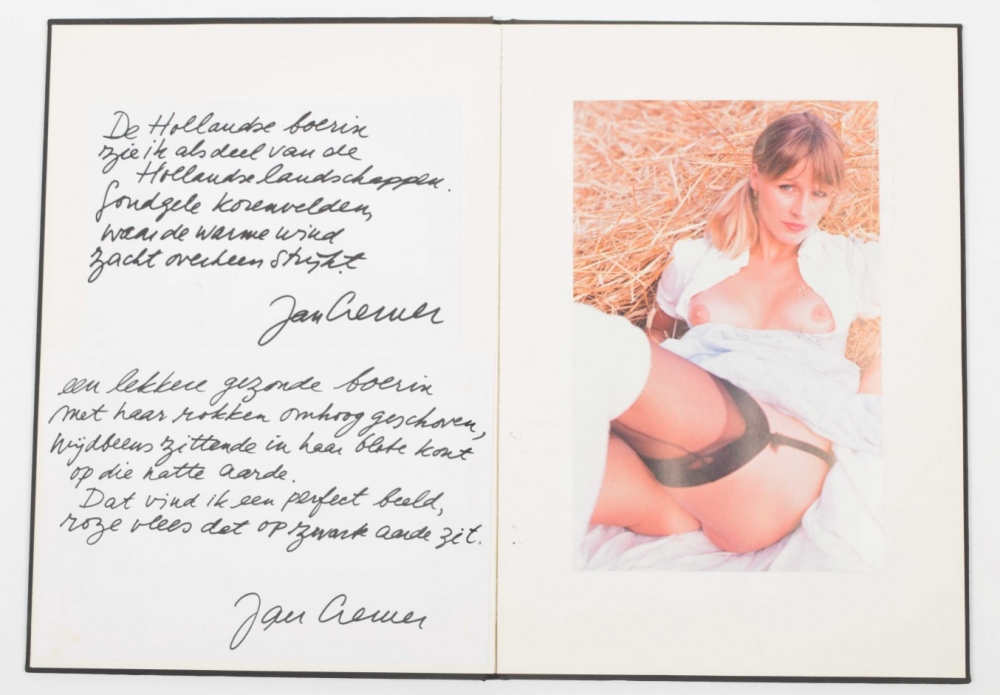 De Hollandse boerin
zie ik als deel van de
Hollandse landschappen.
Goudgele korenvelden,
waar de warme wind
zacht overheen strijkt.
Jan Cremer
een lekkere gezonde boerin
met haar rokken omhoog geschoven,
wijdbeens zittende in haar blote kont
op die natte aarde.
Dat vind ik een perfect beeld,
roze vlees dat op zwarte aarde zit.
Jan Cremer